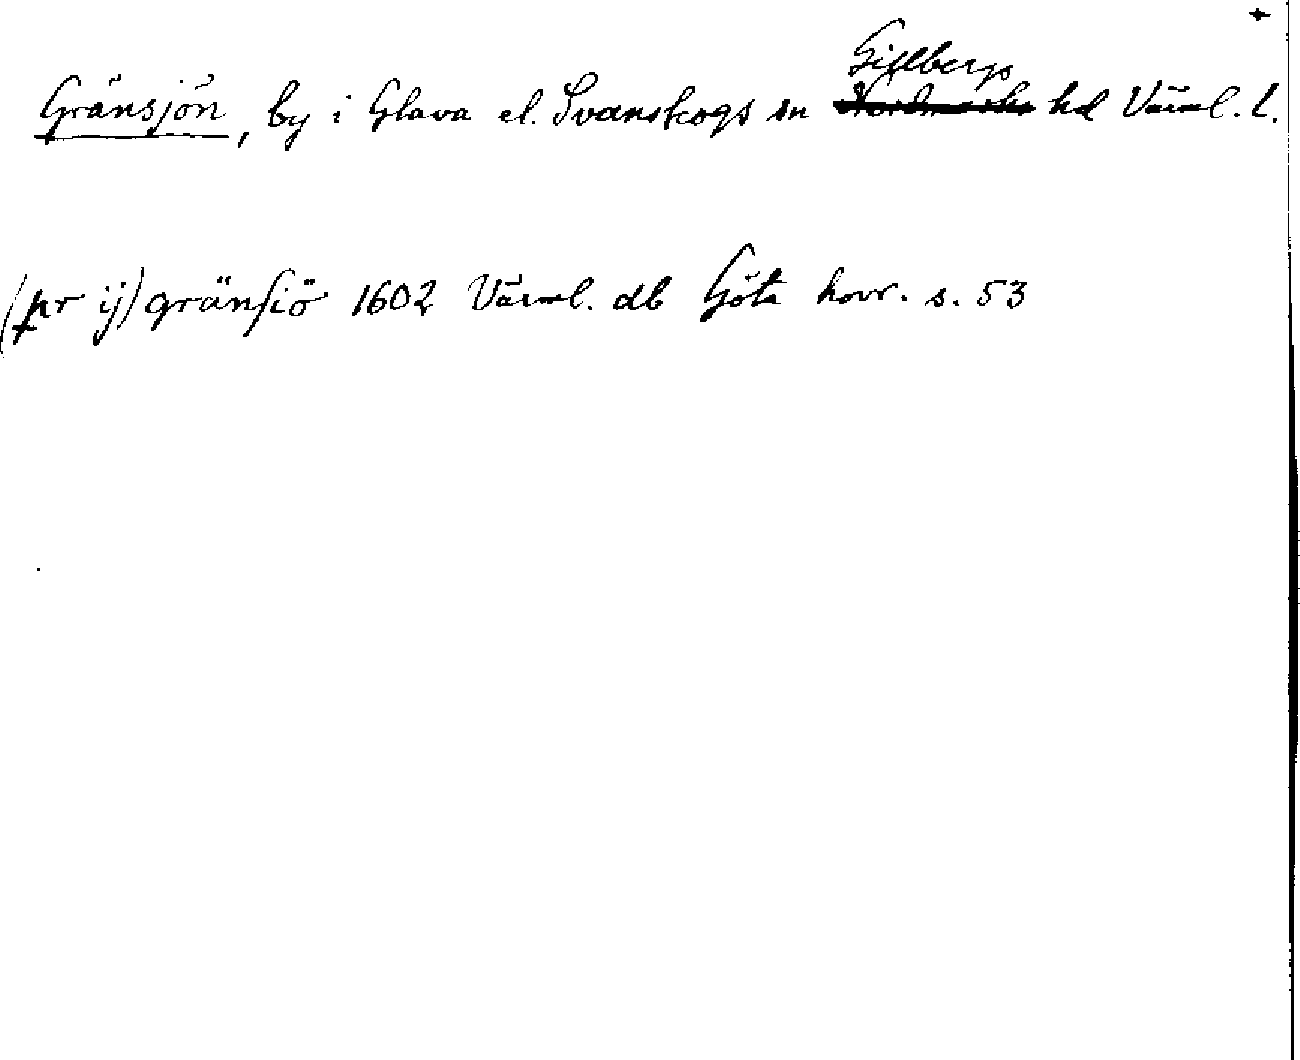 +
Gillbergs
Gränsjön, by i Glava el. Svanskogs sn Nordmarks hd Värml. l.
(pr ij) gränsiö 1602 Värml. db Göta hovr. s. 53